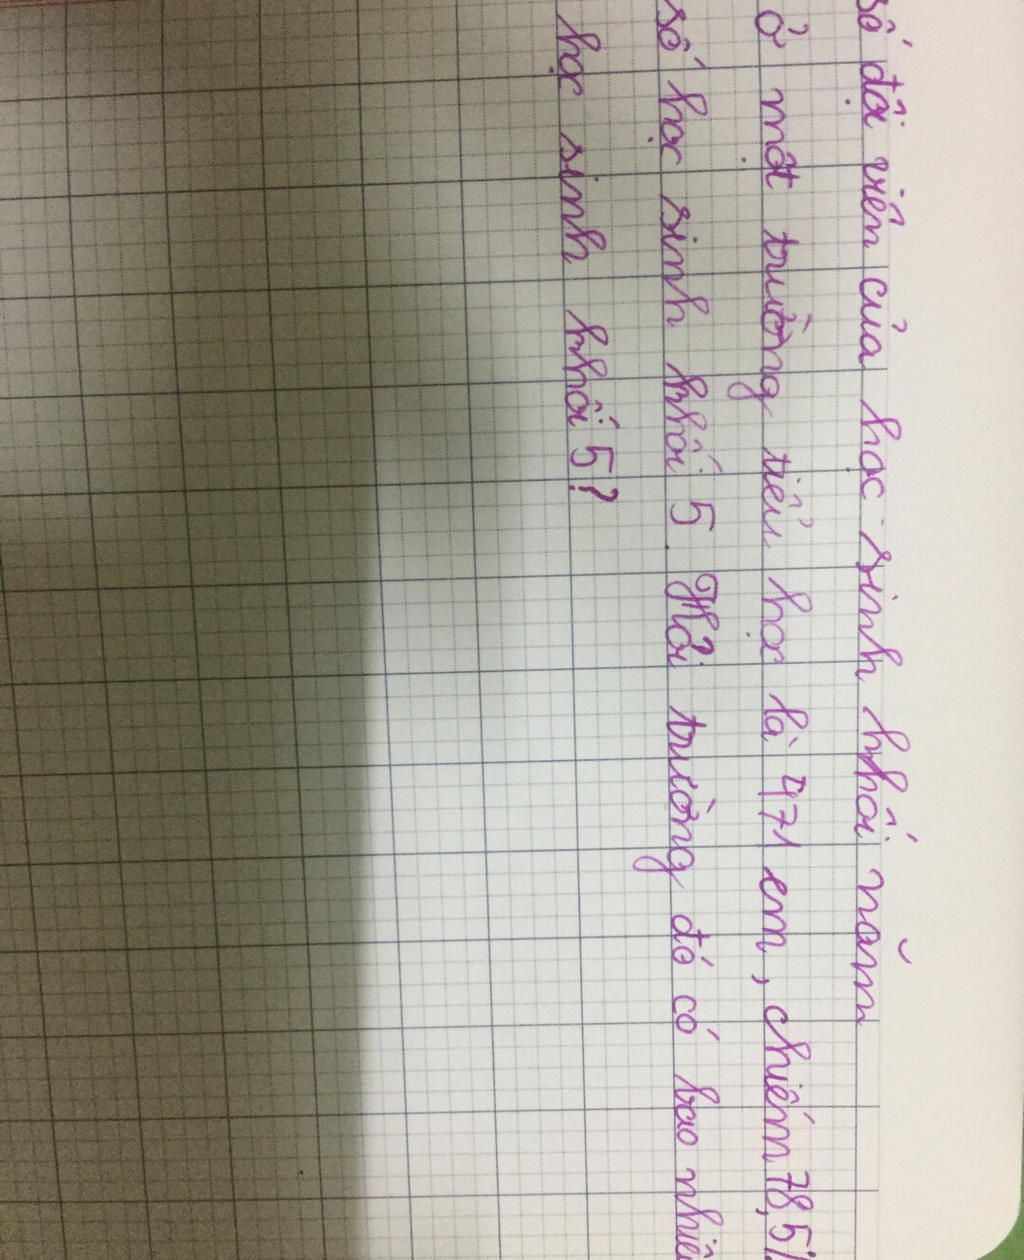 số đội viên của học sinh khối năm
ở một trường tiểu học là 471 em, chiếm 78,5%
số học sinh khối 5. Hỏi trường đó có bao nhiêu
học sinh khối 5?